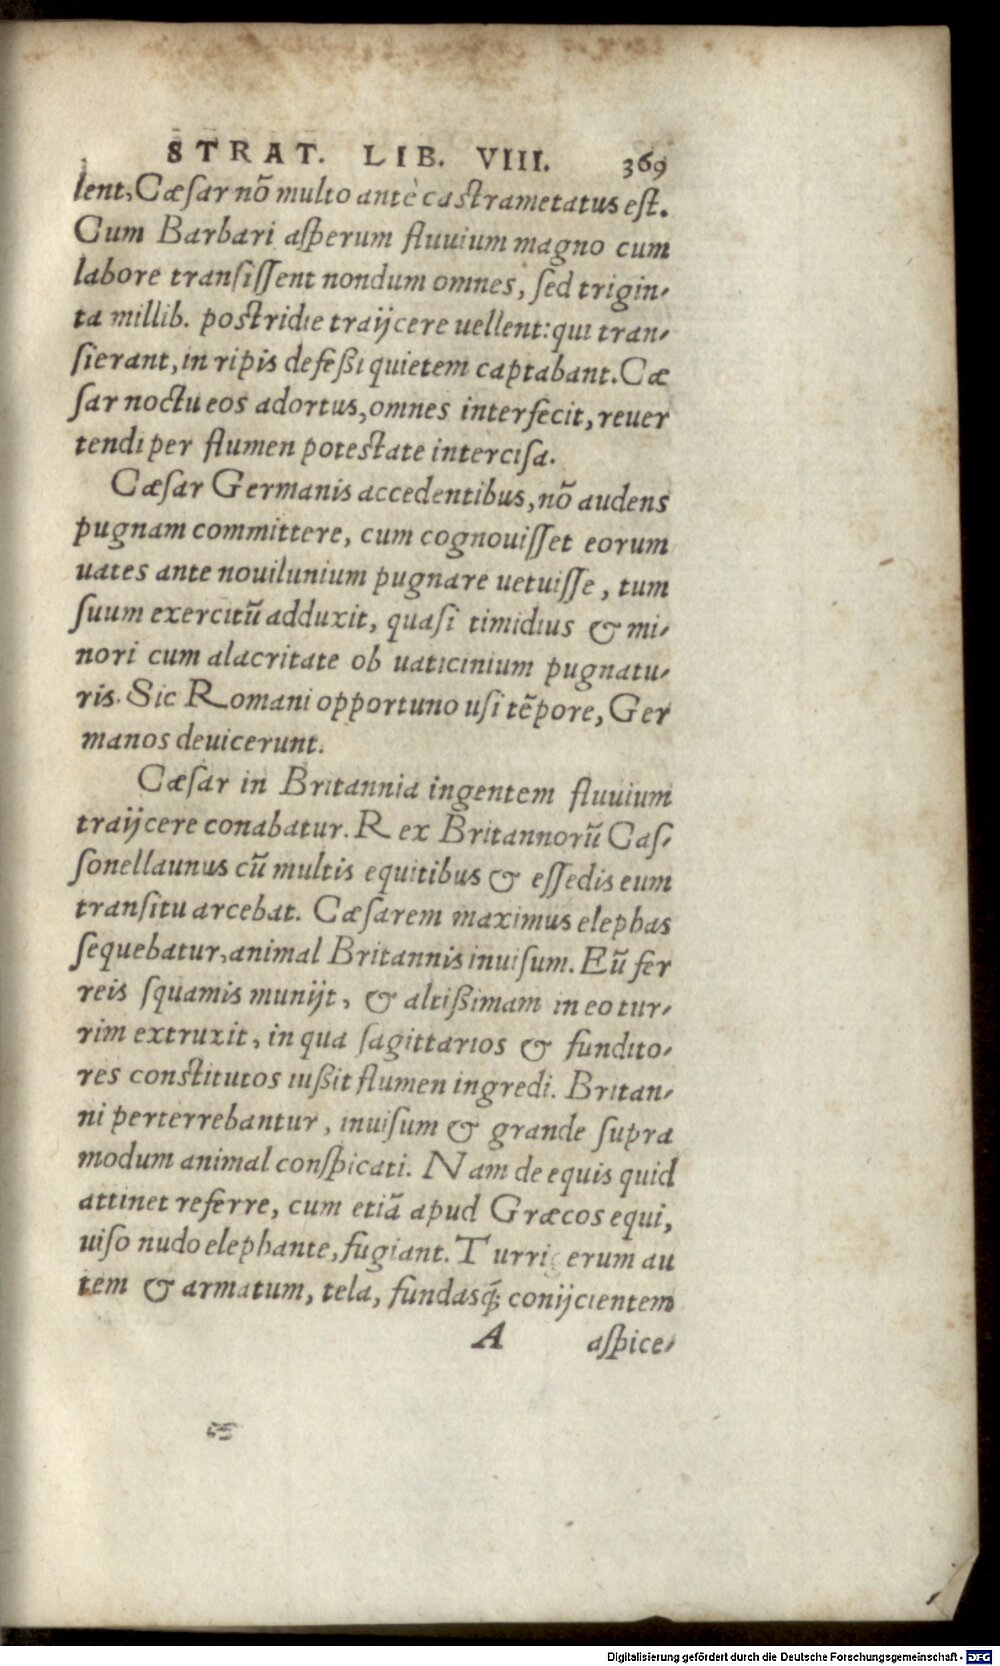 STRAT. LIB. VIII. 369
lent, Cæſar nõ multo antè castrametatus eſt.
Cum Barbari aſperum fluuium magno cum
labore tranſiſſent nondum omnes, ſed trigin-
ta millib. postridie traijcere uellent: qui tran-
ſierant, in ripis defeßi quietem captabant. Cæ
ſar noctu eos adortus, omnes interfecit, reuer
tendi per flumen potestate interciſa.
Cæſar Germanis accedentibus, nõ audens
pugnam committere, cum cognouiſſet eorum
uates ante nouilunium pugnare uetuiſſe, tum
ſuum exercitũ adduxit, quaſi timidius & mi-
nori cum alacritate ob uaticinium pugnatu-
ris. Sic Romani opportuno uſi tẽpore, Ger
manos deuicerunt.
Cæſar in Britannia ingentem fluuium
traijcere conabatur. Rex Britannorũ Caſ-
ſonellaunus cũ multis equitibus & eſſedis eum
tranſitu arcebat. Cæſarem maximus elephas
ſequebatur, animal Britannis inuiſum. Eũ fer
reis ſquamis munijt, & altißimam in eo tur-
rim extruxit, in qua ſagittarios & fundito-
res constitutos iußit flumen ingredi. Britan-
ni perterrebantur, inuiſum & grande ſupra
modum animal conſpicati. Nam de equis quid
attinet referre, cum etiã apud Græcos equi,
uiſo nudo elephante, fugiant. Turrigerum au
tem & armatum, tela, fundasq́; conijcientem
A aſpice-
Digitalisierung gefördert durch die Deutsche Forschungsgemeinschaft - DFG